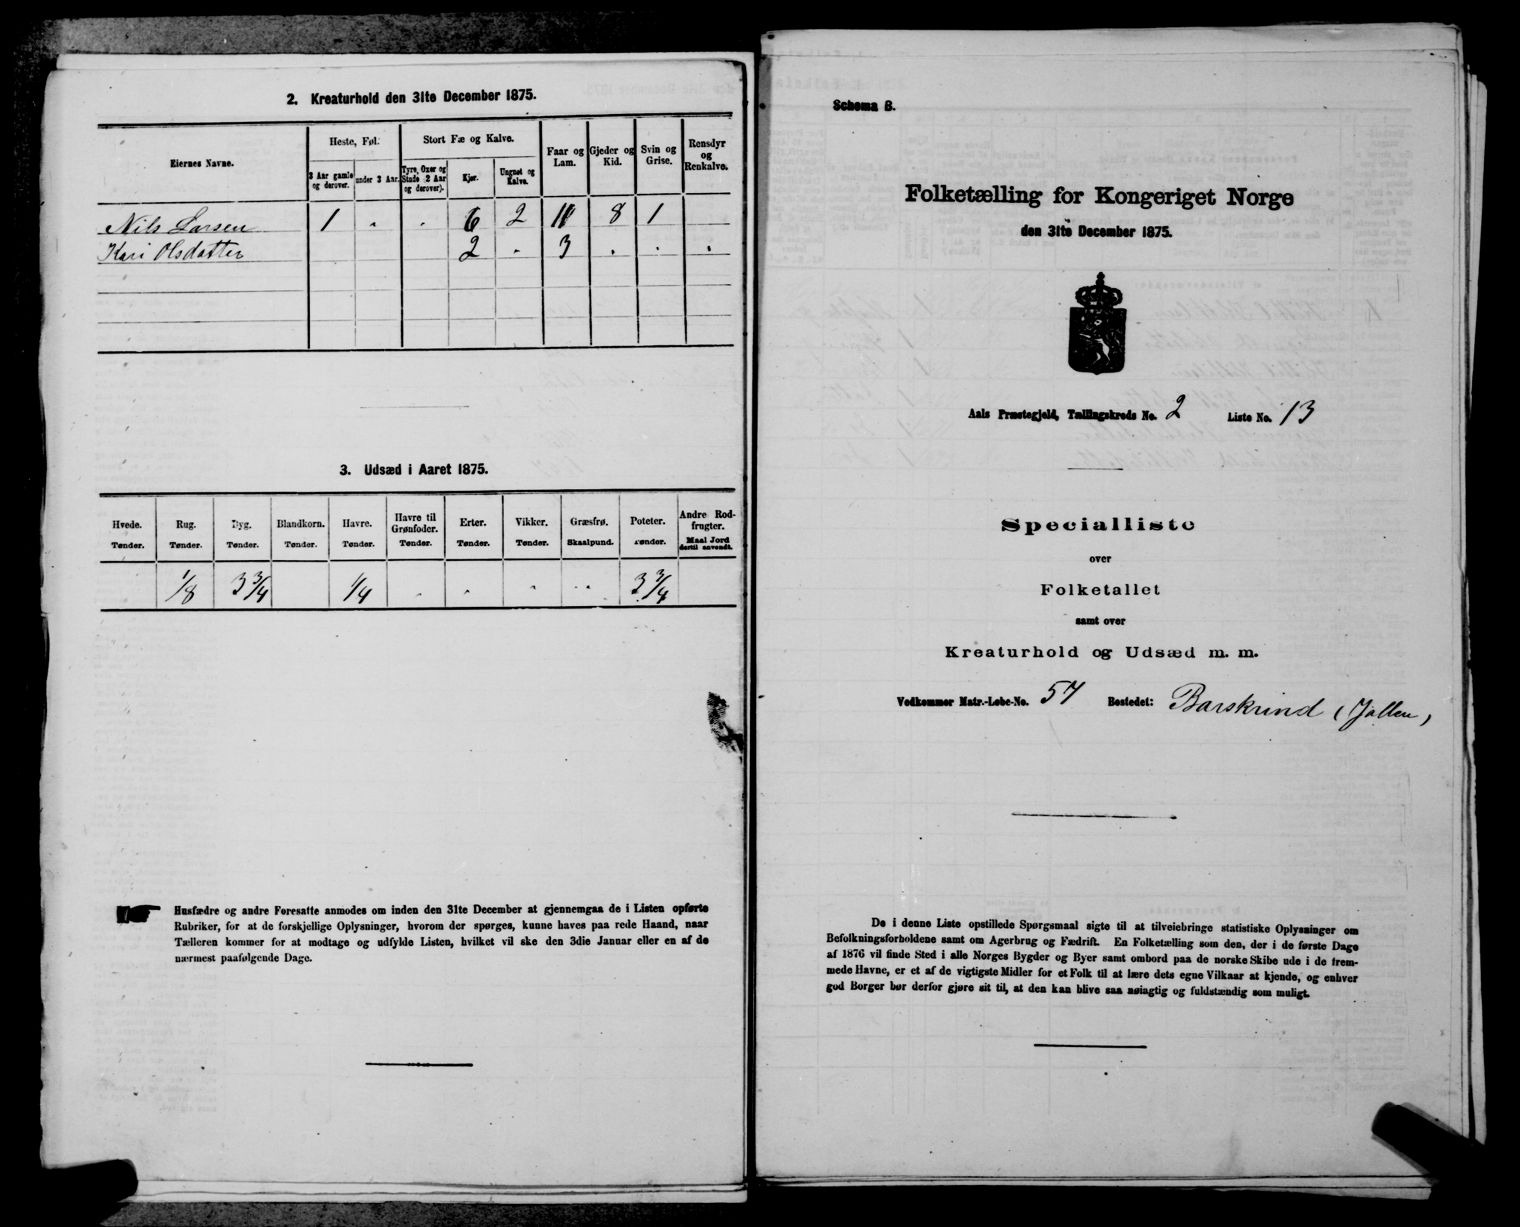 2. Kreaturhold den 31te December 1875.
Eiernes Navne.
Heste, Føl.
Stort Fæ og Kalve.
Faar og Lam.
Gjeder og Kid.
Svin og Grise.
Rensdyr og Renkalve.
3 Aar gamle og derover.
under 3 Aar.
Tyre, Oxer og Stude 2 Aar og derover).
Kjør.
Ungnøt og Kalve.
Nils Larsen 1 " " 6 2 8 1
Kari Olsdatter 2 " 3 " " "
3. Udsæd i Aaret 1875.
Hvede. Rug. Byg. Blandkorn. Havre. Havre til Grønfoder. Erter. Vikker. Græsfrø. Poteter. Andre Rodfrugter.
Tønder. Tønder. Tønder. Tønder. Tønder. Tønder. Tønder. Tønder. Skaalpund. Tønder. Maal Jord dertil anvendt.
1/8 3 3/4 1/4 " " " " " 3 3/4
Husfædre og andre Foresatte anmodes om inden den 31te December at gjennemgaa de i Listen opførte
Rubriker, for at de forskjellige Oplysninger, hvorom der spørges, kunne haves paa rede Haand, naar
Tælleren kommer for at modtage og udfylde Listen, hvilket vil ske den 3die Januar eller en af de
nærmest paafølgende Dage.
Schema B.
Folketælling for Kongeriget Norge
den 31te December 1875.
Aals Præstegjeld, Tællingskreds No. 2 Liste No. 13
Specialliste
over
Folketallet
samt over
Kreaturhold og Udsæd m. m.
Vedkommer Matr.-Løbe-No. 57 Bostedet: Barskrind (Jallen)
De i denne Liste opstillede Spørgsmaal sigte til at tilveiebringe statistiske Oplysninger om
Befolkningsforholdene samt om Agerbrug og Fædrift. En Folketælling som den, der i de første Dage
af 1876 vil finde Sted i alle Norges Bygder og Byer samt ombord paa de norske Skibe ude i de frem-
mede Havne, er et af de vigtigste Midler for et Folk til at lære dets egne Vilkaar at kjende, og enhver
god Borger bør derfor gjøre sit til, at den kan blive saa nøiagtig og fuldstændig som muligt.